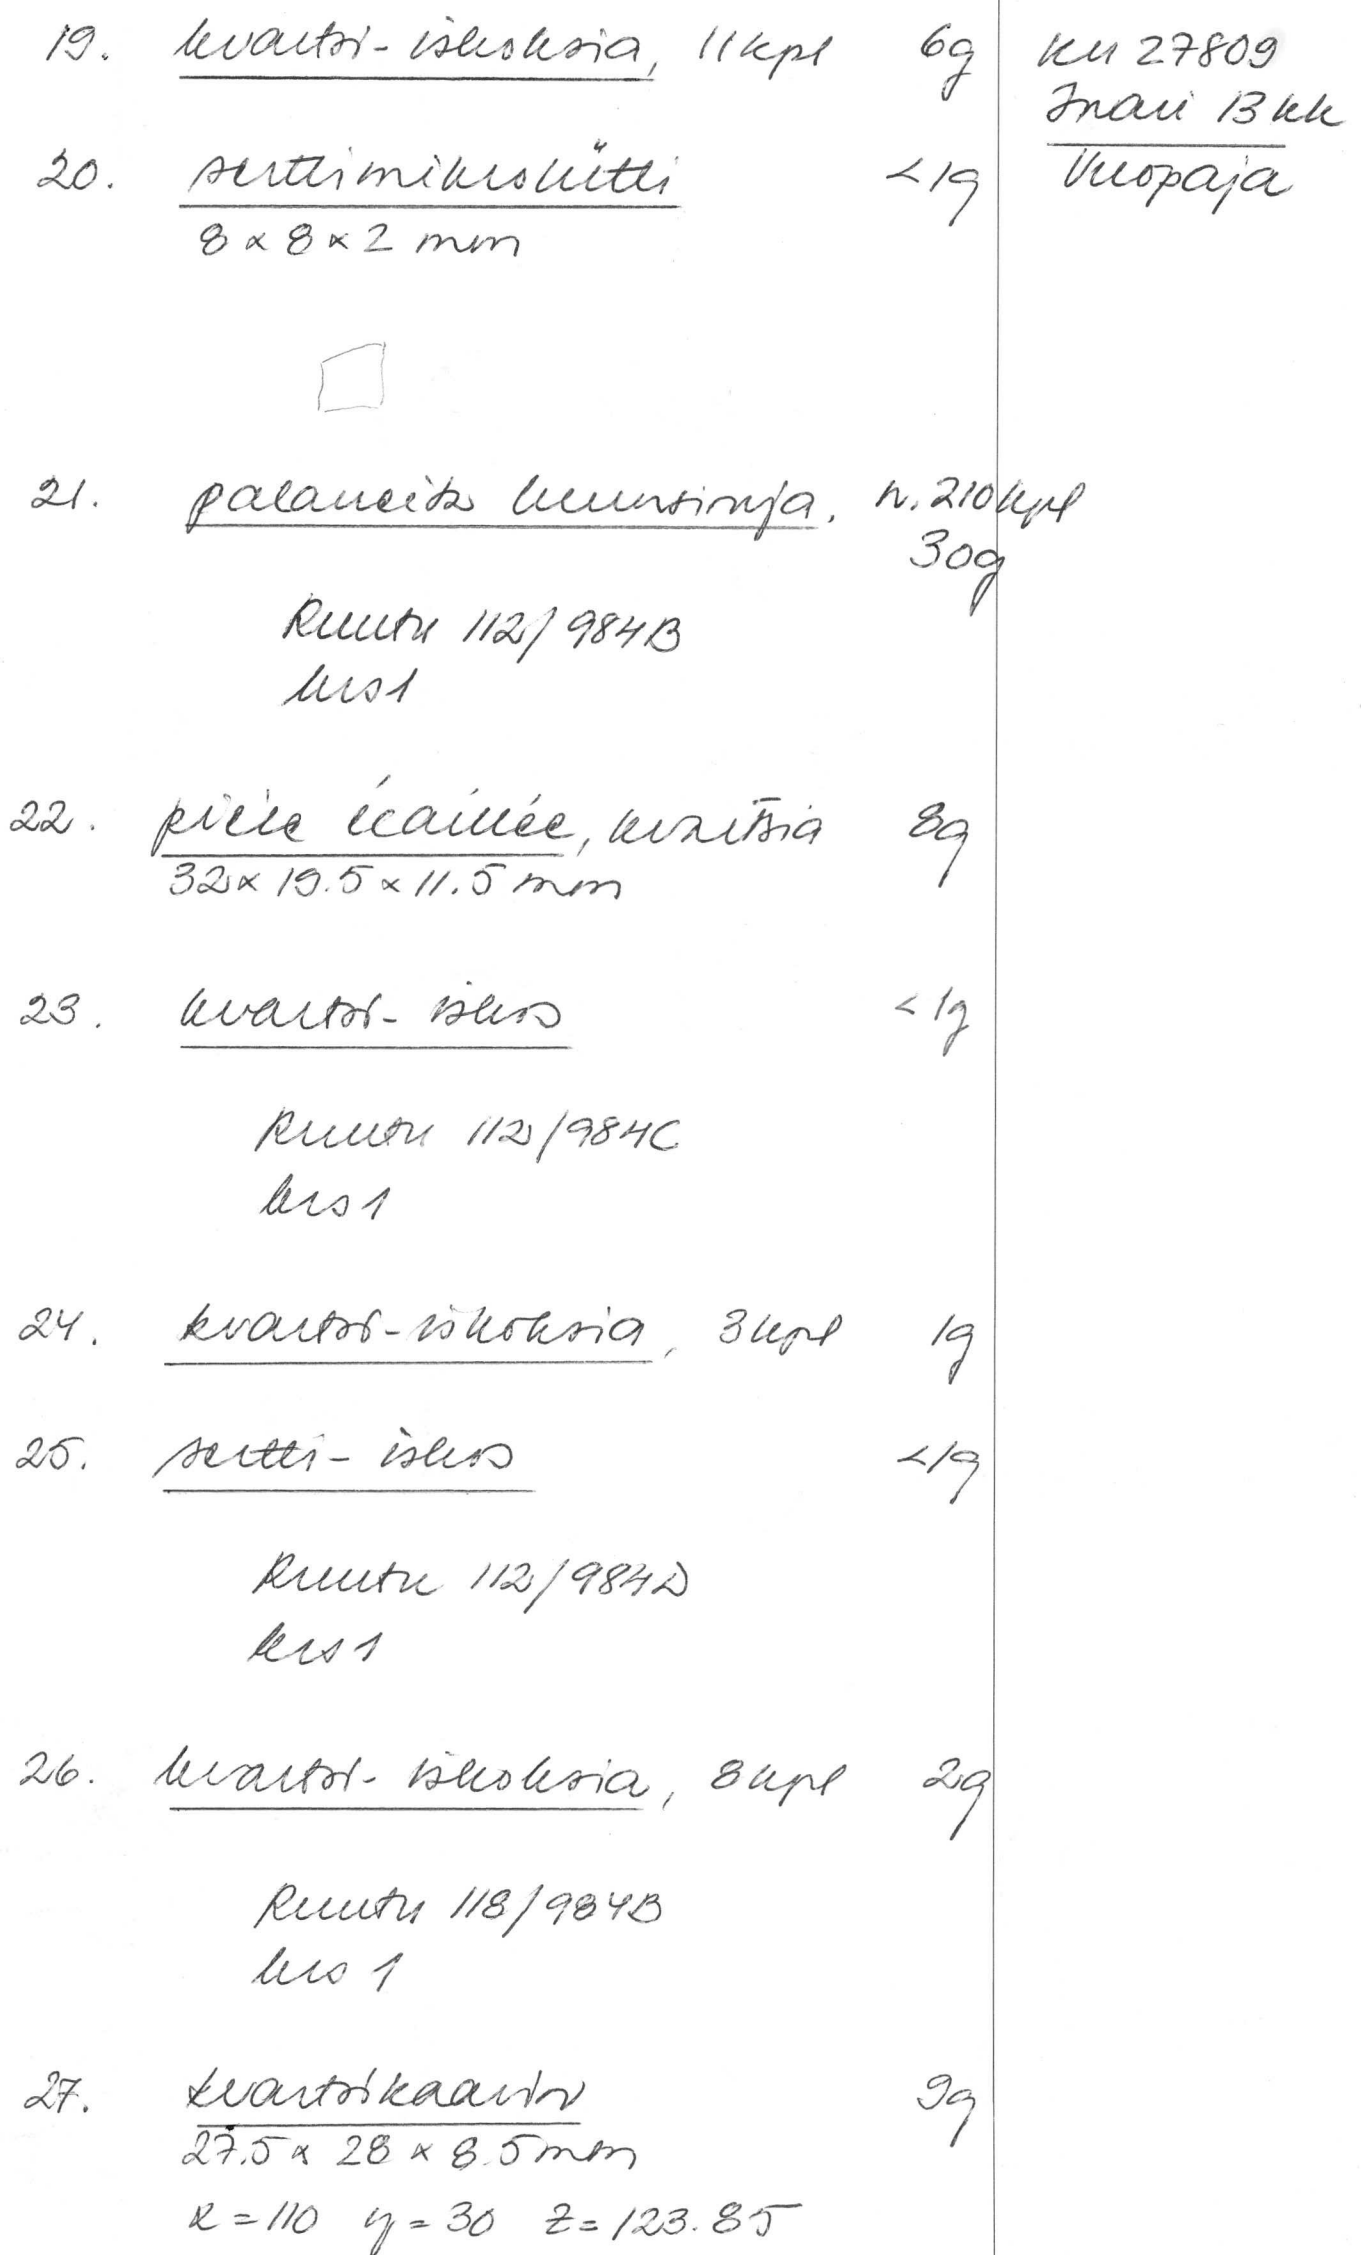 19. kvartsi-iskoksia, 11 kpl 6g
KM 27809
Inari 13 kk
Vuopaja
20. serttimikroliitti <1g
8 x 8 x 2 mm
21. palaneita luunsiruja, n. 210 kpl
30g
Ruutu 112/984B
krs 1
22. pièce écaillée, kvartsia 8g
32 x 19.5 x 11.5 mm
23. kvartsi-iskos <1g
Ruutu 112/984C
krs 1
24. kvartsi-iskoksia, 3 kpl 1g
25. sertti-iskos <1g
Ruutu 112/984D
krs 1
26. kvartsi-iskoksia, 8 kpl 2g
Ruutu 118/984B
krs 1
27. kvartsikaavin 9g
27.5 x 28 x 8.5 mm
x = 110 y = 30 z = 123.85